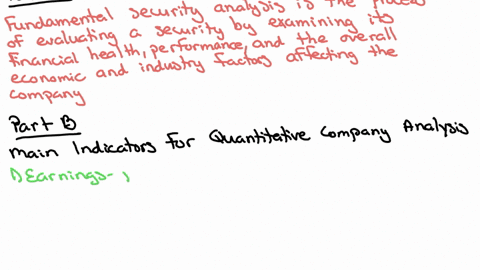 Fundamental security analysis is the process
of evaluating a security by examining its
financial health, performance, and the overall
economic and industry factors affecting the
company
Part B
main Indicators for Quantitative Company Analysis
1) Earnings-